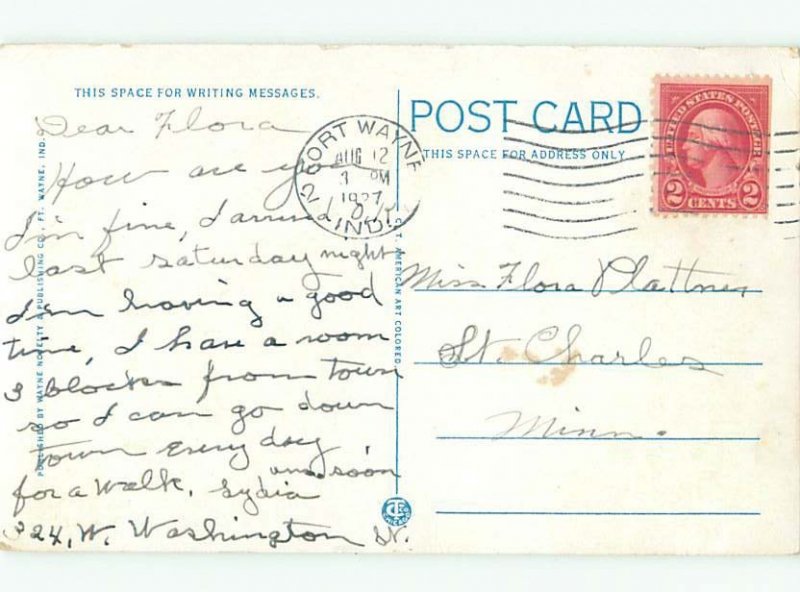 THIS SPACE FOR WRITING MESSAGES.
Dear Flora
How are you
I'm fine, I arrived
last saturday night
I'm having a good
time, I have a room
3 blocks from town
so I can go down
town every day
for a walk. ans. soon
Lydia
324, W. Washington St.
PUBLISHED BY WAYNE NOVELTY & PUBLISHING CO., FT. WAYNE, IND.
C. T. AMERICAN ART COLORED
POST CARD
THIS SPACE FOR ADDRESS ONLY
FORT WAYNE
AUG 12
3 PM
1927
IND.
2
UNITED STATES POSTAGE
2 CENTS 2
Miss Flora Plattner
St. Charles
Minn.
CHICAGO